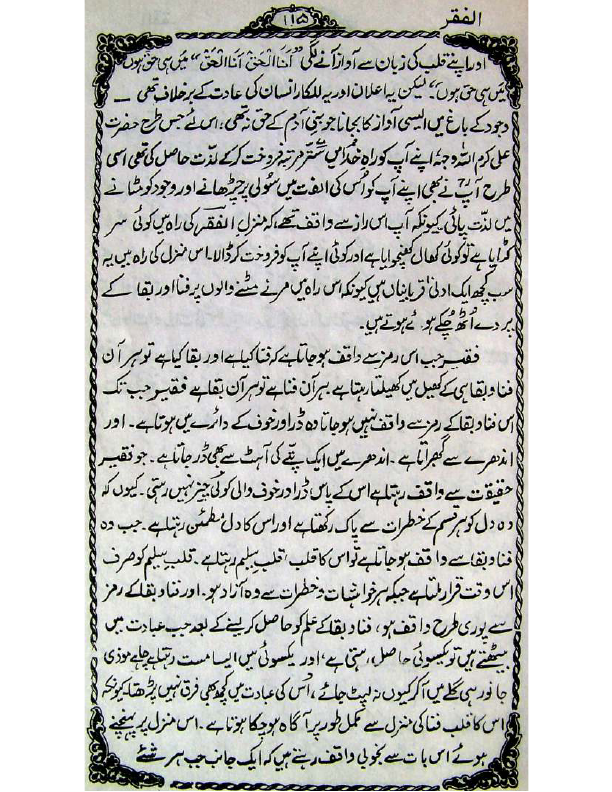 الفقر
۱۱۵
اور اپنے قلب کی زبان سے آواز آنے لگی "اَنَا الْحَقْ اَنَا الْحَقْ" میں ہی حق ہوں
میں ہی حق ہوں"۔ لیکن یہ اعلان اور یہ للکار انسان کی عادت کے برخلاف تھی —
وجود کے باغ میں ایسی آواز کا بجانا جو بنی آدم کے حق نہ تھی، اس نے جس طرح حضرت
علی کرم اللہ وجہہٗ اپنے آپ کو راہِ خدا میں ستّر مرتبہ فروخت کر کے لذّت حاصل کی تھی اسی
طرح آپؒ نے بھی اپنے آپ کو اُس کی الفت میں سُولی پر چڑھانے اور وجود کو مٹانے
میں لذّت پائی کیونکہ آپ اس راز سے واقف تھے، کہ منزل الفقر کی راہ میں کوئی سر
کٹوایا ہے تو کوئی کھال کھنچوایا ہے اور کوئی اپنے آپ کو فروخت کر ڈالا۔ اس منزل کی راہ میں یہ
سب کچھ ایک ادنیٰ قربانیاں ہیں کیونکہ اس راہ میں مرنے مٹنے والوں پر فنا اور بقا کے
پردے اُٹھ چُکے ہوئے ہوتے ہیں۔
فقیر جب اس رمز سے واقف ہو جاتا ہے کہ فنا کیا ہے اور بقا کیا ہے تو ہر آن
فنا و بقا ہی کے کھیل میں کھیلتا رہتا ہے۔ ہر آن فنا ہے تو ہر آن بقا ہے فقیر جب تک
اس فنا و بقا کے رمز سے واقف نہیں ہو جاتا وہ ڈر اور خوف کے دائرے میں ہوتا ہے۔ اور
اندھرے سے گھبراتا ہے۔ اندھرے میں ایک پتّے کی آہٹ سے بھی ڈر جاتا ہے۔ جو فقیر
حقیقت سے واقف رہتا ہے اس کے پاس ڈر اور خوف والی کوئی چیز نہیں رہتی۔ کیوں کہ
وہ دل کو ہر قسم کے خطرات سے پاک رکھتا ہے اور اس کا دل مطمئن رہتا ہے۔ جب وہ
فنا و بقا سے واقف ہو جاتا ہے تو اس کا قلب، قلبِ سلیم رہتا ہے۔ قلبِ سلیم کو صرف
اس وقت قرار ملتا ہے جبکہ ہر خواہشات و خطرات سے وہ آزاد ہو۔ اور فنا و بقا کے رمز
سے پوری طرح واقف ہو، فنا و بقا کے علم کو حاصل کر لینے کے بعد جب عبادت میں
بیٹھتے ہیں تو یکسوئی حاصل رہتی ہے، اور یکسوئی میں ایسا مست رہتا ہے چاہے موذی
جانور ہی گلے میں آ کر کیوں نہ لپٹ جائے، اُس کی عبادت میں کچھ بھی فرق نہیں پڑھتا۔ کیونکہ
اس کا قلب فنا کی منزل سے مکمل طور پر آگاہ ہو چکا ہوتا ہے۔ اس منزل پر پہنچتے
ہوئے اس بات سے بخوبی واقف رہتے ہیں کہ ایک جانب جب ہر شئے